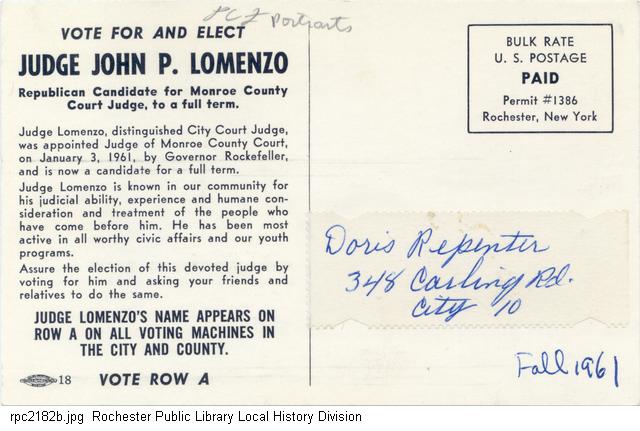 PCL Portraits
VOTE FOR AND ELECT
JUDGE JOHN P. LOMENZO
Republican Candidate for Monroe County
Court Judge, to a full term.
Judge Lomenzo, distinguished City Court Judge,
was appointed Judge of Monroe County Court,
on January 3, 1961, by Governor Rockefeller,
and is now a candidate for a full term.
Judge Lomenzo is known in our community for
his judicial ability, experience and humane con-
sideration and treatment of the people who
have come before him. He has been most
active in all worthy civic affairs and our youth
programs.
Assure the election of this devoted judge by
voting for him and asking your friends and
relatives to do the same.
JUDGE LOMENZO'S NAME APPEARS ON
ROW A ON ALL VOTING MACHINES IN
THE CITY AND COUNTY.
18 VOTE ROW A
BULK RATE
U. S. POSTAGE
PAID
Permit #1386
Rochester, New York
Doris Repenter
348 Carling Rd.
City 10
Fall 1961
rpc2182b.jpg Rochester Public Library Local History Division